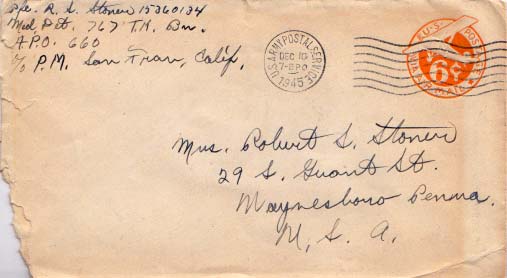 Pfc. R. S. Stoner 15360134
Med. Det. 767 T.K. Bn.
A.P.O. 660
c/o P.M. San Fran, Calif.
U.S. ARMY POSTAL SERVICE
DEC 10
7-PM
1945
U.S. POSTAGE
6¢
VIA AIR MAIL
Mrs. Robert S. Stoner
29 S. Grant St.
Waynesboro Penna.
U. S. A.